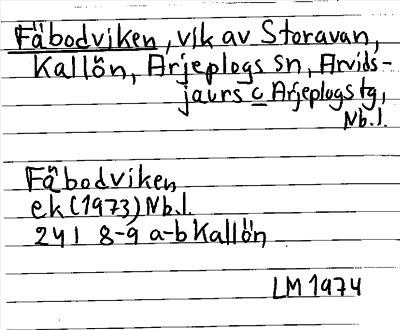 Fäbodviken, vik av Storavan,
Kallön, Arjeplogs sn, Arvids-
jaurs c Arjeplogs tg,
Nb.l.
Fäbodviken
ek (1973) Nb.l.
24 I 8-9 a-b Kallön
LM 1974